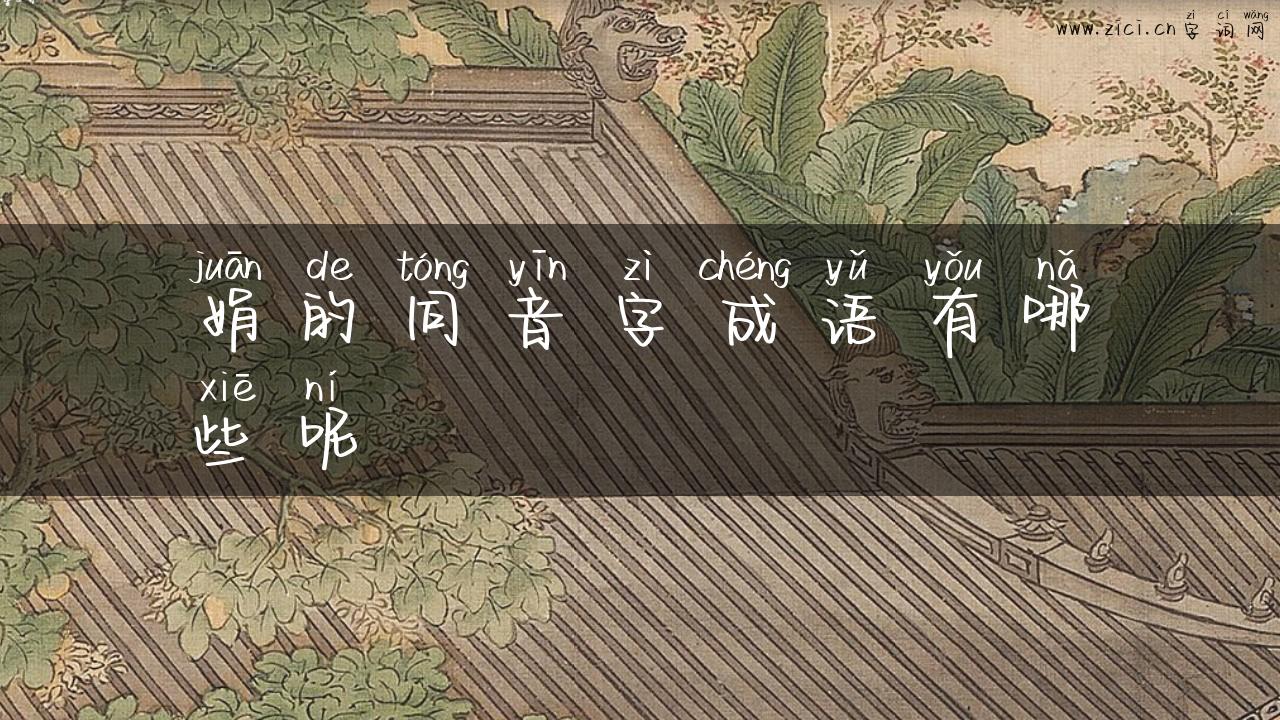 zì cí wǎng
www.zici.cn 字 词 网
juān de tóng yīn zì chéng yǔ yǒu nǎ
娟 的 同 音 字 成 语 有 哪
xiē ní
些 呢